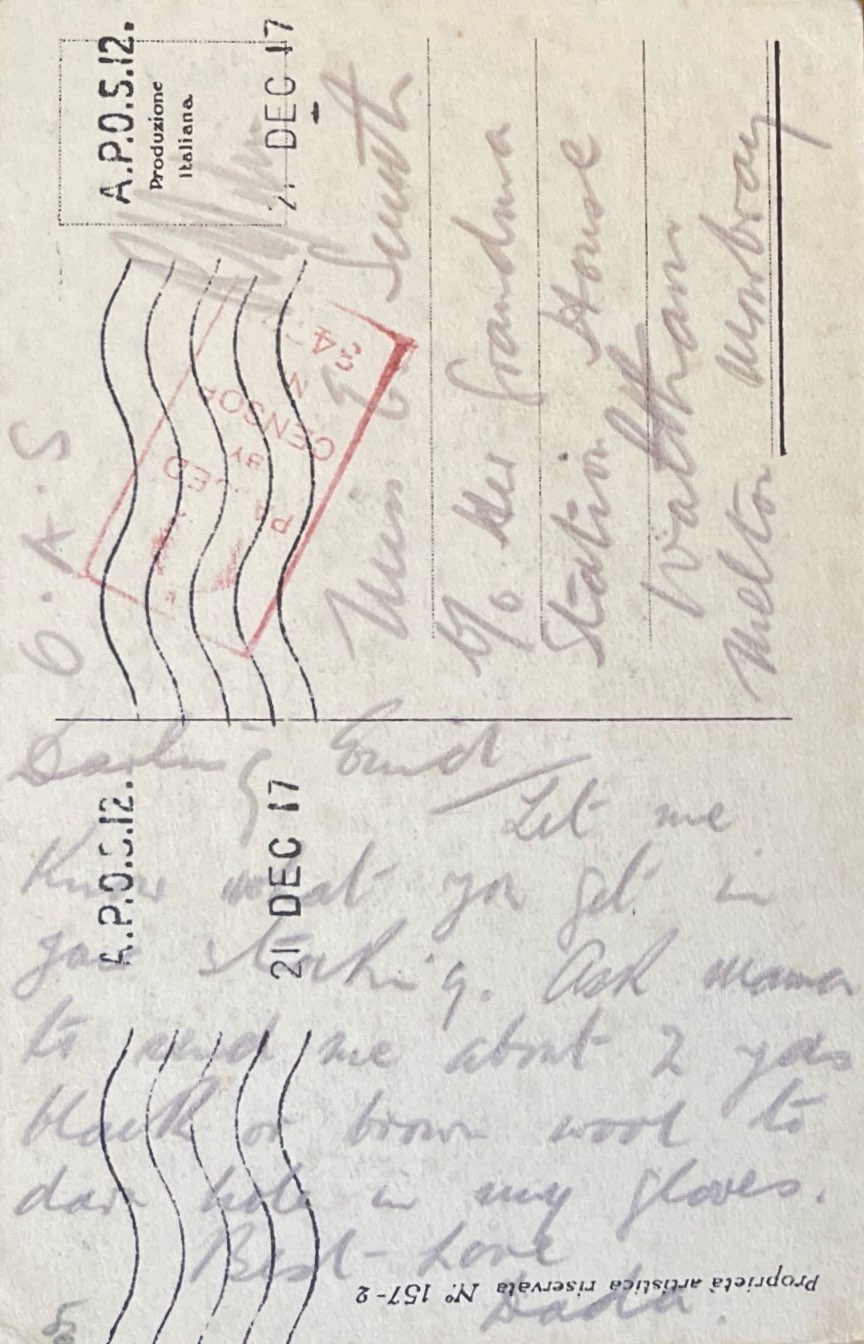 A.P.O.S.12.
Produzione
Italiana.
21 DEC 17
O.A.S
PASSED
BY
CENSOR
Miss E Smith
c/o Her Grandma
Station House
Waltham
Melton Mowbray
A.P.O.S.12.
21 DEC 17
Darling Enid
Let me
know what you get in
your stocking. Ask mama
to send me about 2 yds
black or brown wool to
darn hole in my gloves.
Best Love
Dada.
Proprietà artistica riservata N° 157-2